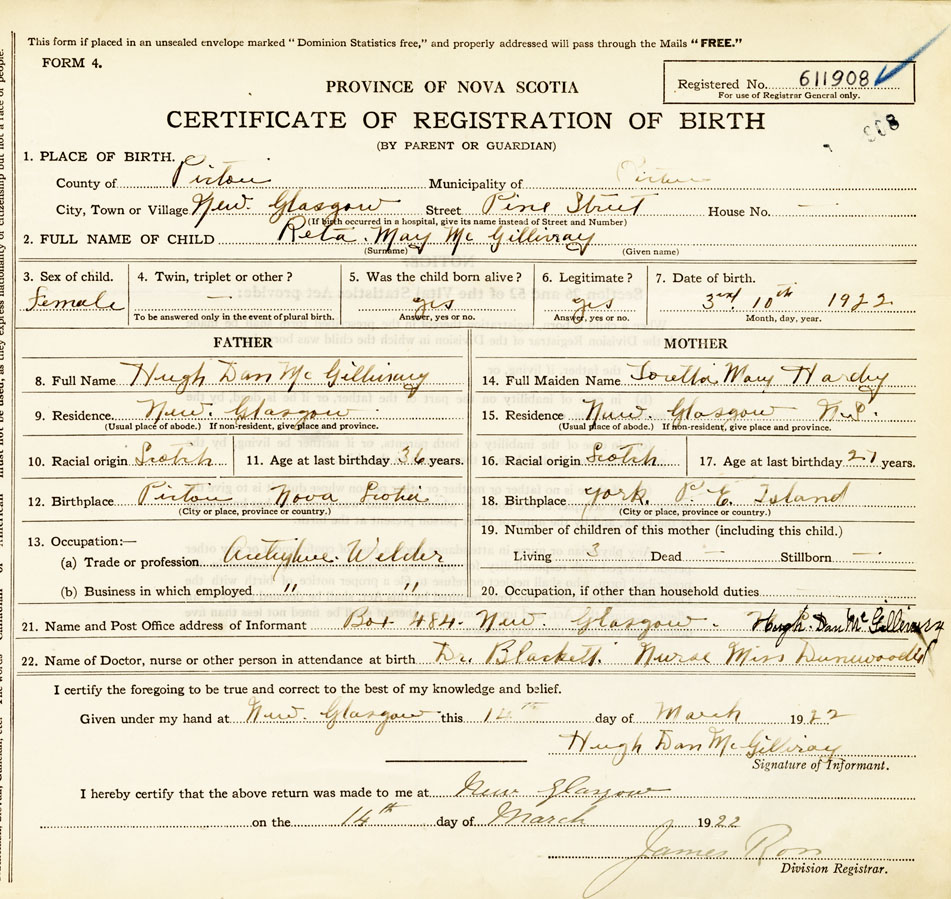 This form if placed in an unsealed envelope marked "Dominion Statistics free," and properly addressed will pass through the Mails "FREE."
FORM 4.
Registered No. 611908
For use of Registrar General only.
PROVINCE OF NOVA SCOTIA
908
CERTIFICATE OF REGISTRATION OF BIRTH
(BY PARENT OR GUARDIAN)
1. PLACE OF BIRTH.
County of Pictou Municipality of Pictou
City, Town or Village New Glasgow Street Pine Street House No. —
(If birth occurred in a hospital, give its name instead of Street and Number)
2. FULL NAME OF CHILD Reta May McGillivray
(Surname) (Given name)
3. Sex of child. 4. Twin, triplet or other? 5. Was the child born alive? 6. Legitimate? 7. Date of birth.
Female — yes yes 3rd 10th 1922
To be answered only in the event of plural birth. Answer, yes or no. Answer, yes or no. Month, day, year.
FATHER MOTHER
8. Full Name Hugh Dan McGillivray 14. Full Maiden Name Loretta May Hardy
9. Residence New Glasgow 15. Residence New Glasgow N.S.
(Usual place of abode.) If non-resident, give place and province. (Usual place of abode.) If non-resident, give place and province.
10. Racial origin Scotch 11. Age at last birthday 36 years. 16. Racial origin Scotch 17. Age at last birthday 27 years.
12. Birthplace Pictou Nova Scotia 18. Birthplace York, P. E. Island
(City or place, province or country.) (City or place, province or country.)
13. Occupation:— 19. Number of children of this mother (including this child.)
(a) Trade or profession Welder Living 3 Dead — Stillborn —
(b) Business in which employed " " 20. Occupation, if other than household duties —
21. Name and Post Office address of Informant Box 484 New Glasgow. Hugh Dan McGillivray
22. Name of Doctor, nurse or other person in attendance at birth Dr. Blackett. Nurse Miss
I certify the foregoing to be true and correct to the best of my knowledge and belief.
Given under my hand at New Glasgow this 14th day of March 1922
Hugh Dan McGillivray
Signature of Informant.
I hereby certify that the above return was made to me at New Glasgow
on the 14th day of March 1922
James Ross
Division Registrar.